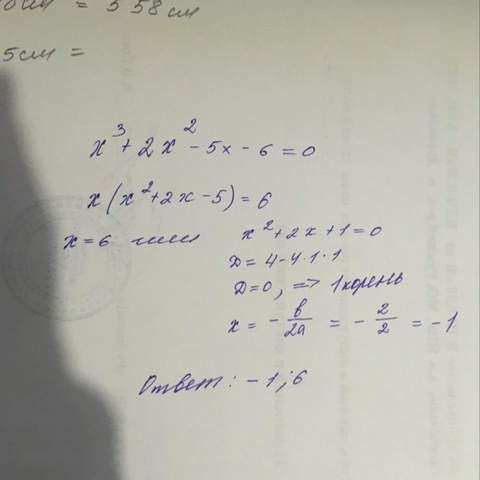 = 358 см
5см =
x³ + 2x² - 5x - 6 = 0
x(x² + 2x - 5) = 6
x = 6 или x² + 2x + 1 = 0
D = 4 - 4·1·1
D = 0, => 1 корень
x = - в/2a = - 2/2 = -1
Ответ: -1; 6